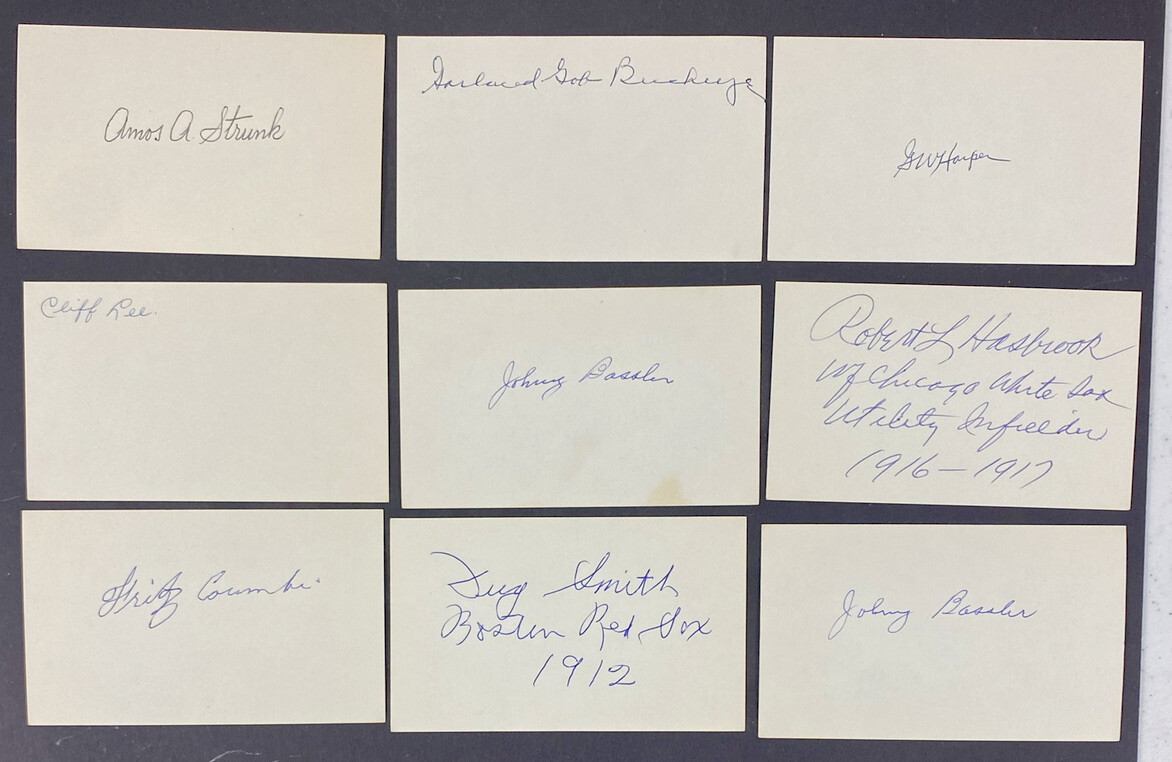 Amos A. Strunk
Garland Gob Buckeye
GW Harper
Cliff Lee.
Johnny Bassler
Robert L Hasbrook
W/ Chicago White Sox
Utility Infielder
1916-1917
Fritz Coumbe
Doug Smith
Boston Red Sox
1912
Johnny Bassler